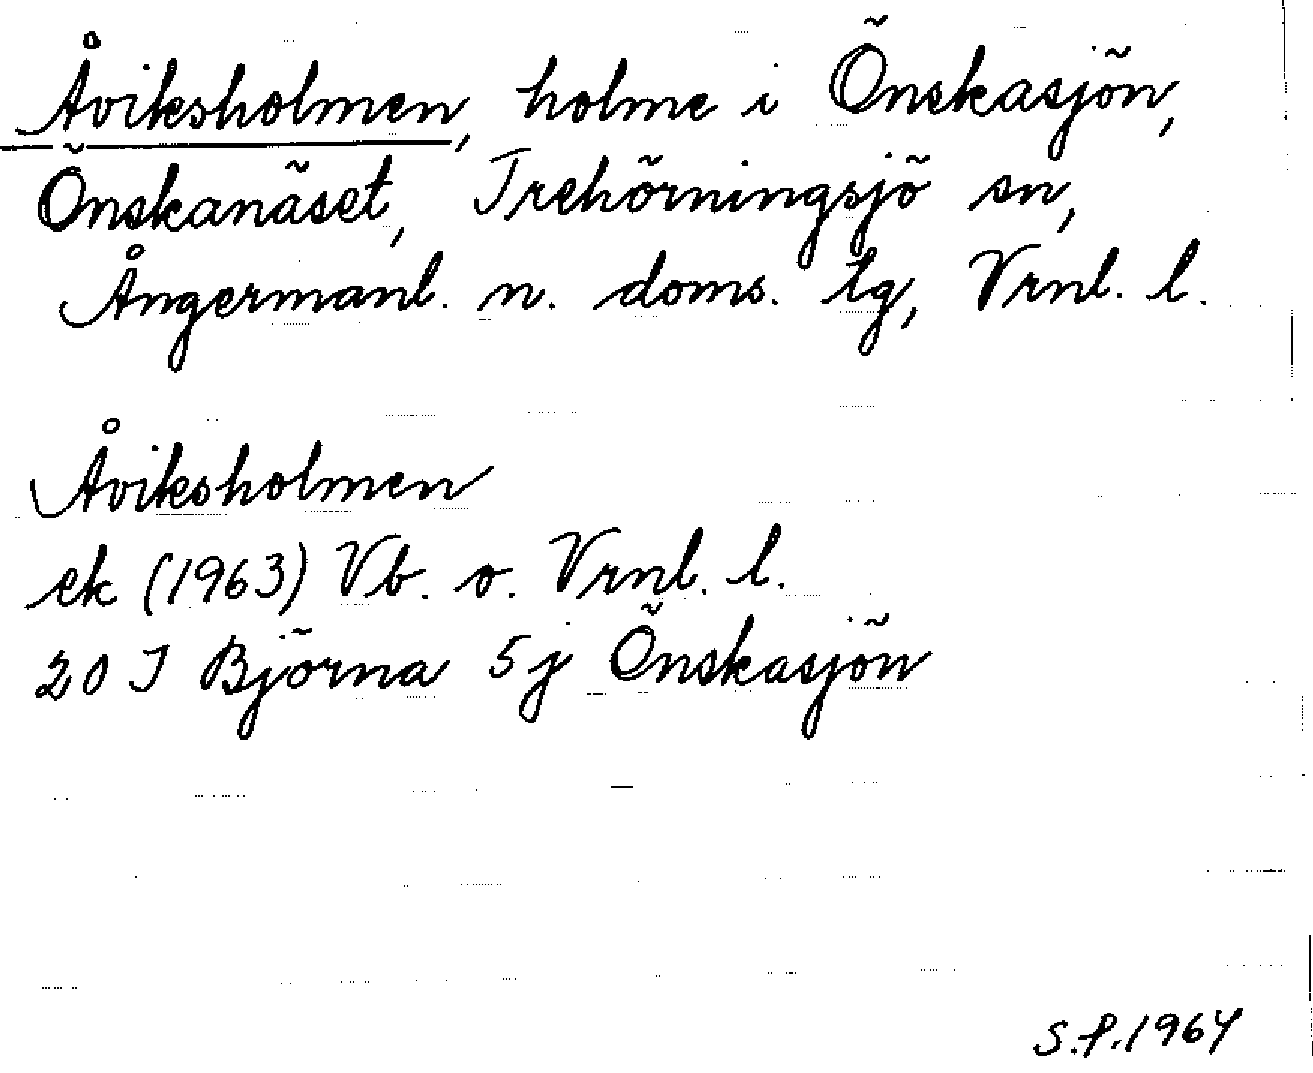 Åviksholmen, holme i Önskasjön,
Önskanäset, Trehörningsjö sn,
Ångermanl. n. doms. lg, Vrnl. l.
Åviksholmen
ek (1963) Vb. o. Vrnl. l.
20 I Björna 5j Önskasjön
S.P. 1964